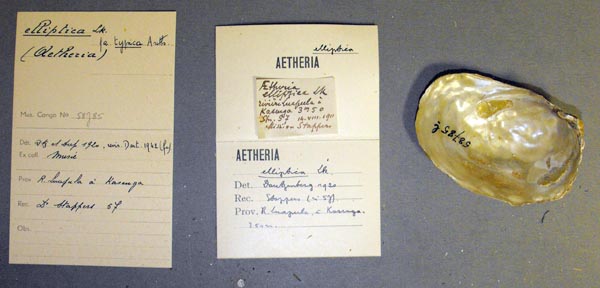 elliptica Lk.
fa. typica Anth.
(Aetheria)
Mus. Congo No 58785
Dét. 1920, 1942
Ex coll. Musée
Prov. R. Luapula à Kasenga
Rec. Dr Stappers 57
Obs.
elliptica
AETHERIA
Aetheria
elliptica Lk
rivière Luapula à
Kasenga 3m50
Stn. 57 14-VIII-1911
mission Stappers
AETHERIA
elliptica Lk.
Det. Dautzenberg 1920
Rec. Stappers (n. 57).
Prov. R. Luapula, à Kasenga.
58785